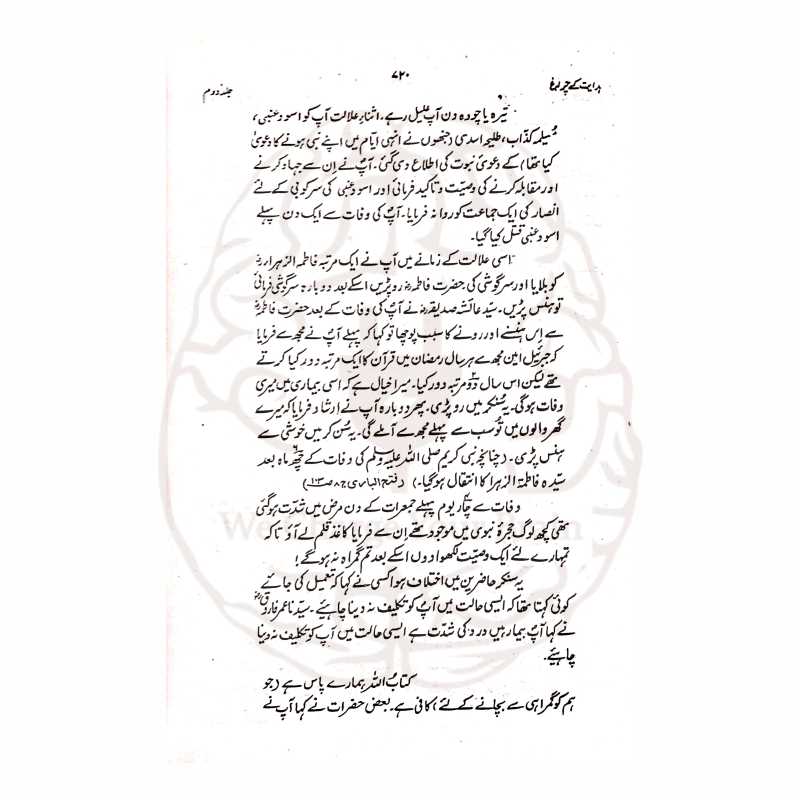 ہدایت کے چراغ
۷۲۰
جلد دوم
تیرہ یا چودہ دن آپ علیل رہے۔ اثناءِ علالت آپ کو اسود عنبی،
مُسیلمہ کذّاب، طلیحہ اسدی (جنھوں نے انہی ایّام میں اپنے نبی ہونے کا دعویٰ
کیا تھا) کے دعویٰ نبوت کی اطلاع دی گئی۔ آپؐ نے اِن سے جہاد کرنے
اور مقابلہ کرنے کی وصیّت و تاکید فرمائی اور اسود عنبی کی سرکوبی کے لئے
انصار کی ایک جماعت کو روانہ فرمایا۔ آپؐ کی وفات سے ایک دن پہلے
اسود عنبی قتل کیا گیا۔
اسی علالت کے زمانے میں آپ نے ایک مرتبہ فاطمۃ الزہراءؓ
کو بلایا اور سرگوشی کی حضرت فاطمہؓ رو پڑیں اسکے بعد دوبارہ سرگوشی فرمائی
تو ہنس پڑیں۔ سیّدہ عائشہ صدیقہؓ نے آپؐ کی وفات کے بعد حضرت فاطمہؓ
سے اِس ہنسنے اور رونے کا سبب پوچھا تو کہا کہ پہلے آپؐ نے مجھ سے فرمایا
کہ جبرئیل امین مجھ سے ہر سال رمضان میں قرآن کا ایک مرتبہ دور کیا کرتے
تھے لیکن اس سال دو ۲ مرتبہ دور کیا۔ میرا خیال ہے کہ اسی بیماری میں میری
وفات ہوگی۔ یہ سُنکر میں رو پڑی۔ پھر دوبارہ آپ نے اِرشاد فرمایا کہ میرے
گھر والوں میں تُو سب سے پہلے مجھ سے آ ملے گی۔ یہ سُن کر میں خوشی سے
ہنس پڑی۔ (چنانچہ نبی کریم صلی اللہ علیہ وسلم کی وفات کے چھ ۶ ماہ بعد
سیّدہ فاطمۃ الزہراء کا انتقال ہو گیا۔) (فتح الباری ج ۸ صـ۱۰۳)
وفات سے چار یوم پہلے جمعرات کے دن مرض میں شدّت ہو گئی
تھی کچھ لوگ حجرۂ نبوی میں موجود تھے اِن سے فرمایا کاغذ قلم لے آؤ تاکہ
تمہارے لئے ایک وصیّت لکھوا دوں اسکے بعد تم گمراہ نہ ہو گے!
یہ سنکر حاضرین میں اختلاف ہوا کسی نے کہا کہ تعمیل کی جائے
کوئی کہتا تھا کہ ایسی حالت میں آپؐ کو تکلیف نہ دینا چاہئیے۔ سیّدنا عمر فاروقؓ
نے کہا آپؐ بیمار ہیں درد کی شدّت ہے ایسی حالت میں آپؐ کو تکلیف نہ دینا
چاہئیے۔
کتابُ اللہ ہمارے پاس ہے (جو
ہم کو گمراہی سے بچانے کے لئے) کافی ہے۔ بعض حضرات نے کہا آپؐ نے